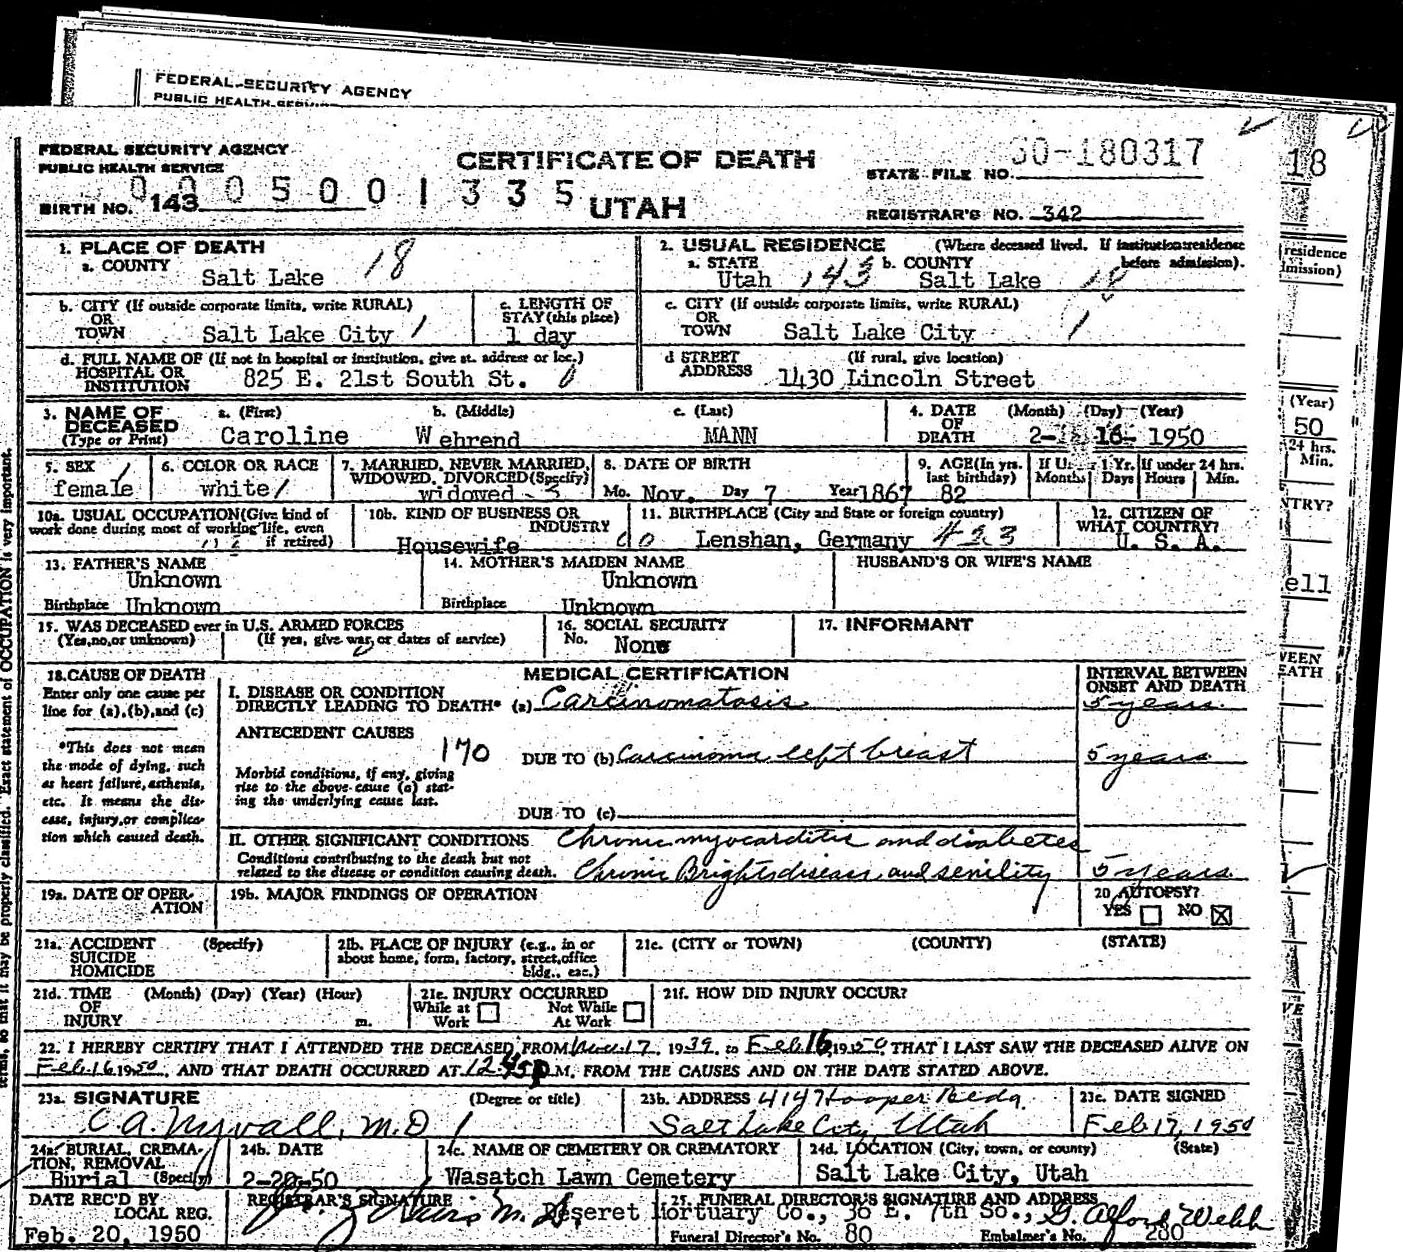 FEDERAL SECURITY AGENCY
PUBLIC HEALTH SERVICE
FEDERAL SECURITY AGENCY
PUBLIC HEALTH SERVICE
CERTIFICATE OF DEATH
UTAH
STATE FILE NO. 50-180317
18
BIRTH NO. 143
0005001335
REGISTRAR'S NO. 342
1. PLACE OF DEATH
a. COUNTY Salt Lake 18
2. USUAL RESIDENCE (Where deceased lived. If institution: residence before admission).
a. STATE Utah 143 b. COUNTY Salt Lake 18
b. CITY (If outside corporate limits, write RURAL) OR TOWN Salt Lake City 1
c. LENGTH OF STAY (this place) 1 day
c. CITY (If outside corporate limits, write RURAL) OR TOWN Salt Lake City 1
d. FULL NAME OF (If not in hospital or institution, give st. address or loc.) HOSPITAL OR INSTITUTION 825 E. 21st South St. 0
d STREET ADDRESS (If rural, give location) 1430 Lincoln Street
3. NAME OF DECEASED (Type or Print) a. (First) Caroline b. (Middle) Wehrend c. (Last) MANN
4. DATE OF DEATH (Month) (Day) (Year) 2- 16- 1950
5. SEX female 1
6. COLOR OR RACE white 1
7. MARRIED, NEVER MARRIED, WIDOWED, DIVORCED (Specify) widowed - 3
8. DATE OF BIRTH Mo. Nov. Day 7 Year 1867
9. AGE (In yrs. last birthday) 82
If Under 1 Yr. Months Days If under 24 hrs. Hours Min.
10a. USUAL OCCUPATION (Give kind of work done during most of working life, even if retired)
10b. KIND OF BUSINESS OR INDUSTRY
Housewife
11. BIRTHPLACE (City and State or foreign country) Lenshan, Germany 423
12. CITIZEN OF WHAT COUNTRY? U. S. A.
13. FATHER'S NAME Unknown
Birthplace Unknown
14. MOTHER'S MAIDEN NAME Unknown
Birthplace Unknown
HUSBAND'S OR WIFE'S NAME
15. WAS DECEASED ever in U.S. ARMED FORCES
(Yes, no, or unknown) (If yes, give war or dates of service)
16. SOCIAL SECURITY No. None
17. INFORMANT
18. CAUSE OF DEATH
Enter only one cause per line for (a), (b), and (c)
*This does not mean the mode of dying, such as heart failure, asthenia, etc. It means the disease, injury, or complication which caused death.
MEDICAL CERTIFICATION
INTERVAL BETWEEN ONSET AND DEATH
I. DISEASE OR CONDITION DIRECTLY LEADING TO DEATH* (a) Carcinomatosis 5 years
ANTECEDENT CAUSES 170 DUE TO (b) Carcinoma left breast 5 years
Morbid conditions, if any, giving rise to the above cause (a) stating the underlying cause last.
DUE TO (c)
II. OTHER SIGNIFICANT CONDITIONS Chronic myocarditis and diabetes
Conditions contributing to the death but not related to the disease or condition causing death. Chronic Brights disease and senility 5 years
19a. DATE OF OPERATION
19b. MAJOR FINDINGS OF OPERATION
20 AUTOPSY? YES NO X
21a. ACCIDENT SUICIDE HOMICIDE (Specify)
21b. PLACE OF INJURY (e.g., in or about home, form, factory, street, office bldg., esc.)
21c. (CITY or TOWN) (COUNTY) (STATE)
21d. TIME OF INJURY (Month) (Day) (Year) (Hour) m.
21e. INJURY OCCURRED While at Work Not While At Work
21f. HOW DID INJURY OCCUR?
22. I HEREBY CERTIFY THAT I ATTENDED THE DECEASED FROM Nov. 17, 1939, to Feb 16, 1950, THAT I LAST SAW THE DECEASED ALIVE ON
Feb 16 1950, AND THAT DEATH OCCURRED AT 12:45 P.M. FROM THE CAUSES AND ON THE DATE STATED ABOVE.
23a. SIGNATURE (Degree or title) C. A. Nyvall, M.D 1
23b. ADDRESS 4147 Hooper Bldg. Salt Lake City Utah
23c. DATE SIGNED Feb 17, 1950
24a. BURIAL, CREMATION, REMOVAL (Specify) Burial
24b. DATE 2-20-50
24c. NAME OF CEMETERY OR CREMATORY Wasatch Lawn Cemetery
24d. LOCATION (City, town, or county) (State) Salt Lake City, Utah
DATE REC'D BY LOCAL REG. Feb. 20, 1950
REGISTRAR'S SIGNATURE M.D.
25. FUNERAL DIRECTOR'S SIGNATURE AND ADDRESS
Deseret Mortuary Co., 36 E. 7th So., G. Alford Webb
Funeral Director's No. 80 Embalmer's No. 280